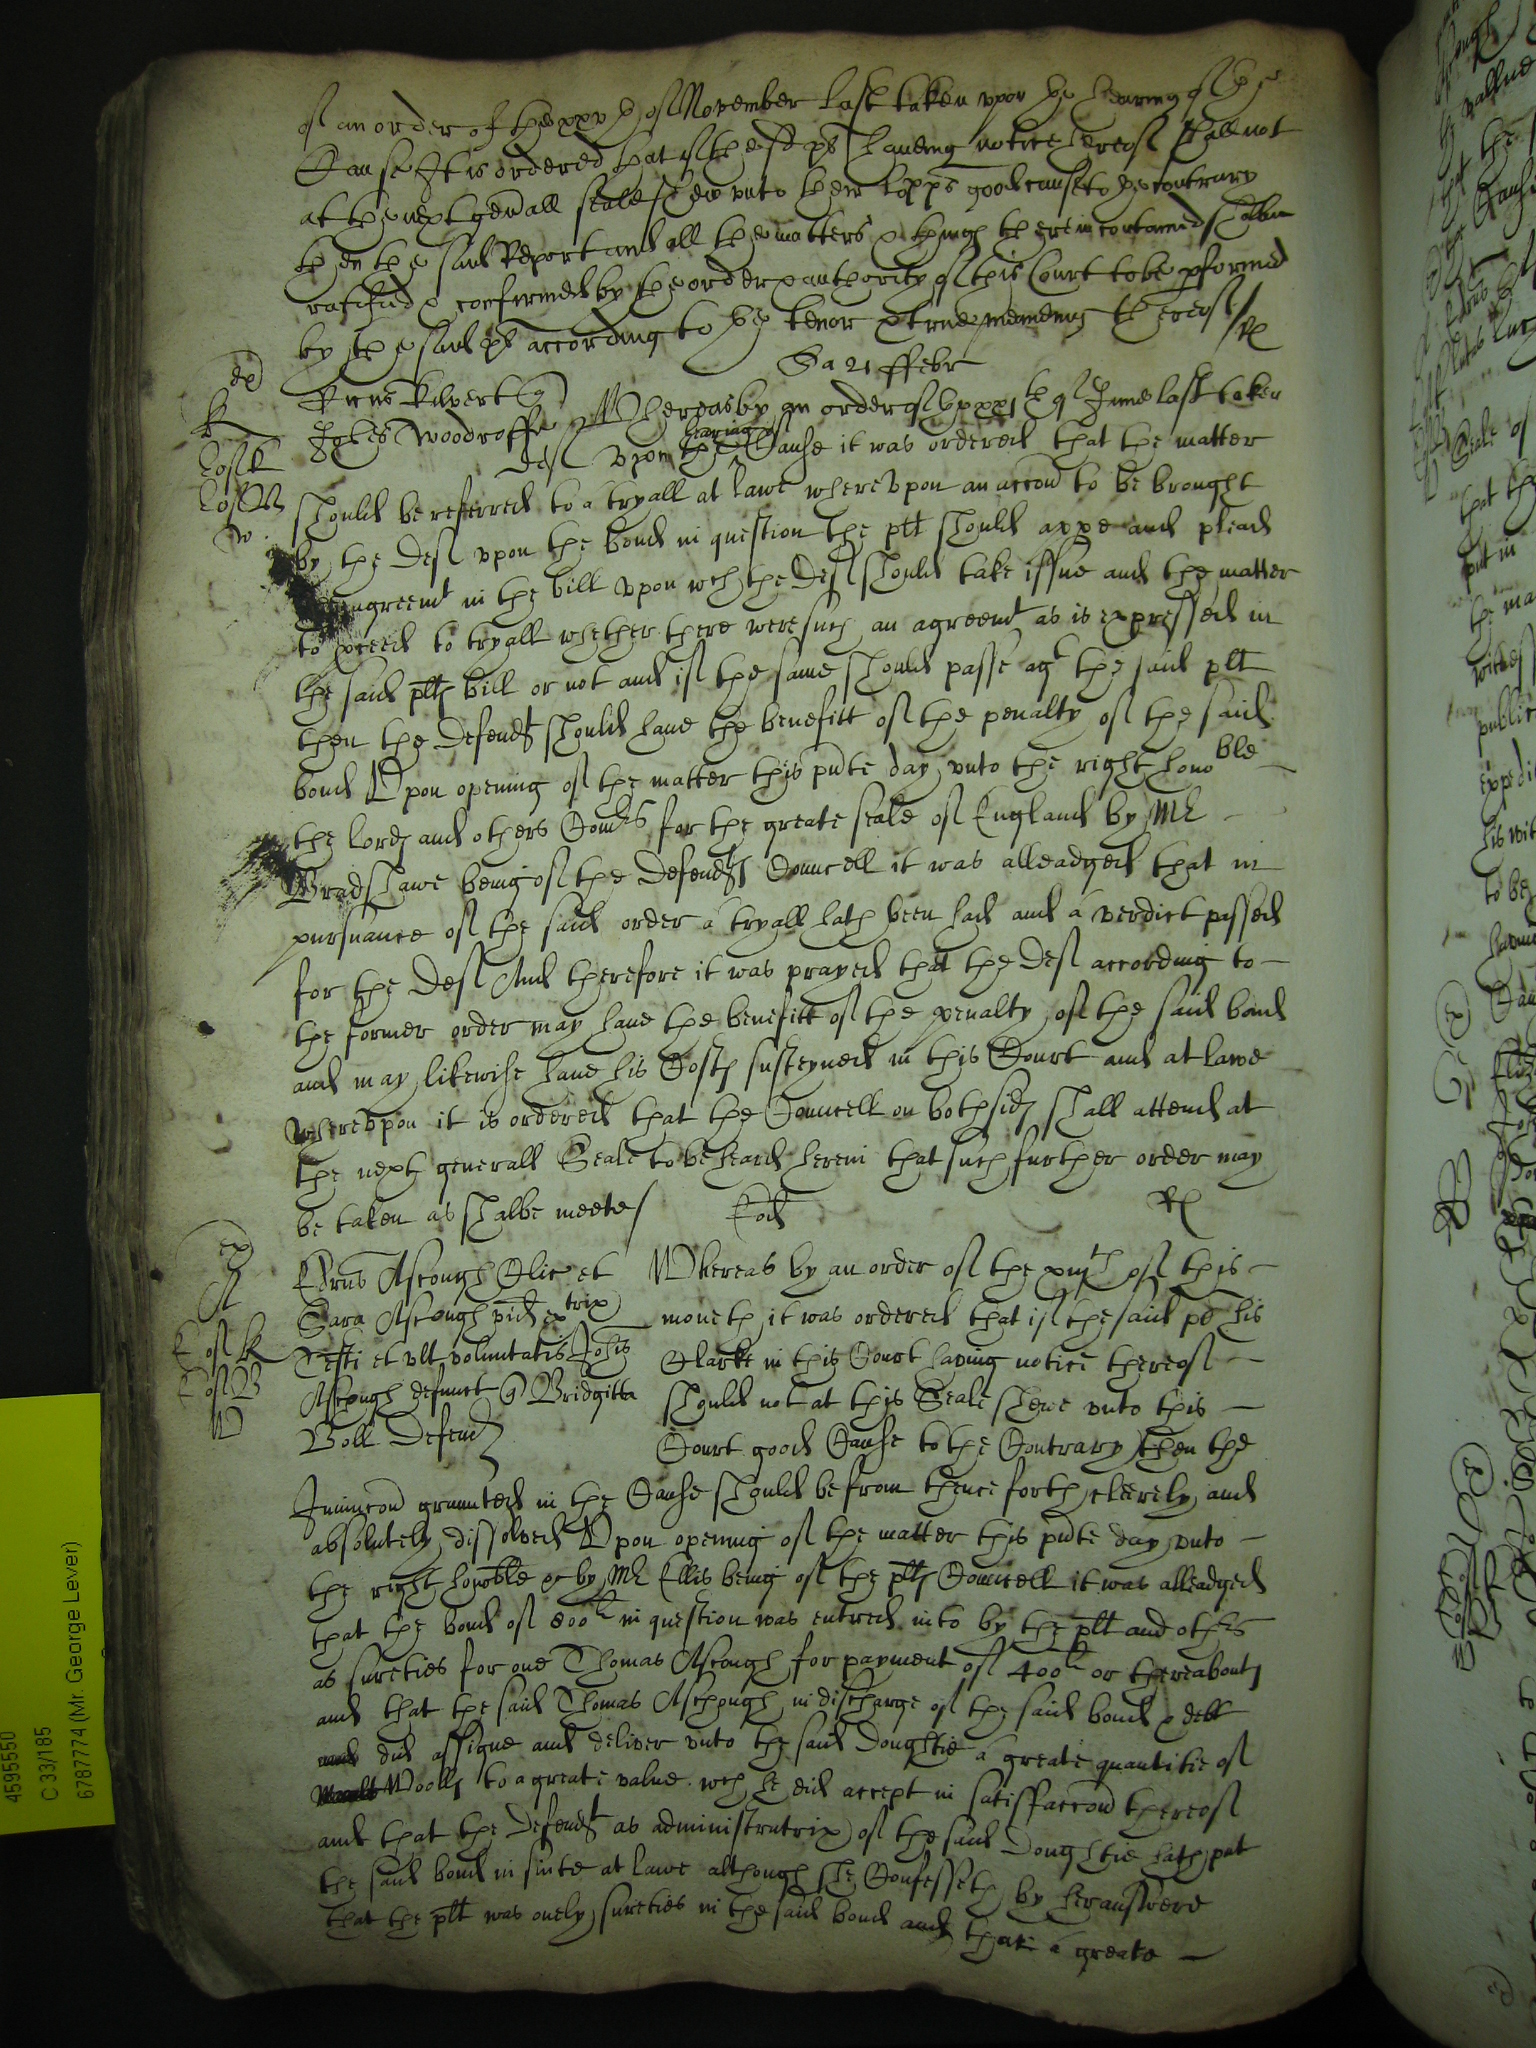 of an order of the xxvth of November last taken vpon the hearing of the
Cause It is ordered that if the sd pts haueing notice hereof shall not
at the next genall seale shew vnto their Lopps good cause to the contrary
then the said Report and all the matters & things therein contained shalbe
ratified & confirmed by the order & authority of this Court to be pformed
by the said pts according to the tenor & true meaneing thereof / Rx
Sa 21 ffebr
Ricus Kilvert Q
Johes Woodroffe
def
Whereas by an order of the xxxth of June last taken
vpon the hearing of Cause it was ordered that the matter
should be referred to a tryall at Lawe wherevpon an accon to be brought
by the def vpon the bond in question the plt should appe and plead
agreemt in the bill vpon wch the def should take issue and the matter
to pceed to tryall whether there were such an agreemt as is expressed in
the said plts bill or not and if the same should passe agt the said plt
then the defendt should haue the benefitt of the penalty of the said
bond Vpon opening of the matter this pnte day vnto the right honoble
the lords and others Comrs for the greate seale of England by Mr
Bradshawe being of the defendts Councell it was alleadged that in
pursuance of the said order a tryall hath been had and a verdict passed
for the def And therefore it was prayed that the def according to
the former order may haue the benefitt of the penalty of the said bond
and may likewise haue his Costs susteyned in this Court and at Lawe
Wherevpon it is ordered that the Councell on both sids shall attend at
the next generall Seale to be heard herein that such further order may
be taken as shalbe meete / Eod Rx
Edrus Ascough Clic et
Sara Ascough pred extrix
Testi et vlt voluntatis Johis
Ascough defunct Q Bridgitta
Boll Defend
Whereas by an order of the xiijth of this
moneth it was ordered that if the said pt his
Clarke in this Court having notice thereof
should not at this Seale shewe vnto this
Court good Cause to the Contrary then the
Iniunccon graunted in the Cause should be from thence forth cleerely and
absolutely dissolved Vpon opening of the matter this pnte day vnto
the right honoble &c by Mr Ellis being of the plts Councell it was alleadged
that the bond of 800li in question was entred into by the plt and othrs
as sureties for one Thomas Ascough for payment of 400li or thereabouts
and that the said Thomas Aschough in discharge of the said bond & debt
did assigne and deliver vnto the said Doughtie a greate quantitie of
Wooll to a greate value wch he did accept in satisfaccon thereof
and that the defendt as administratrix of the said Doughtie hath put
the said bond in suite at Lawe although she Confesseth by her answere
that the plt was onely sureties in the said bond and that a greate
4595550
C 33/185
6787774 (Mr. George Lever)